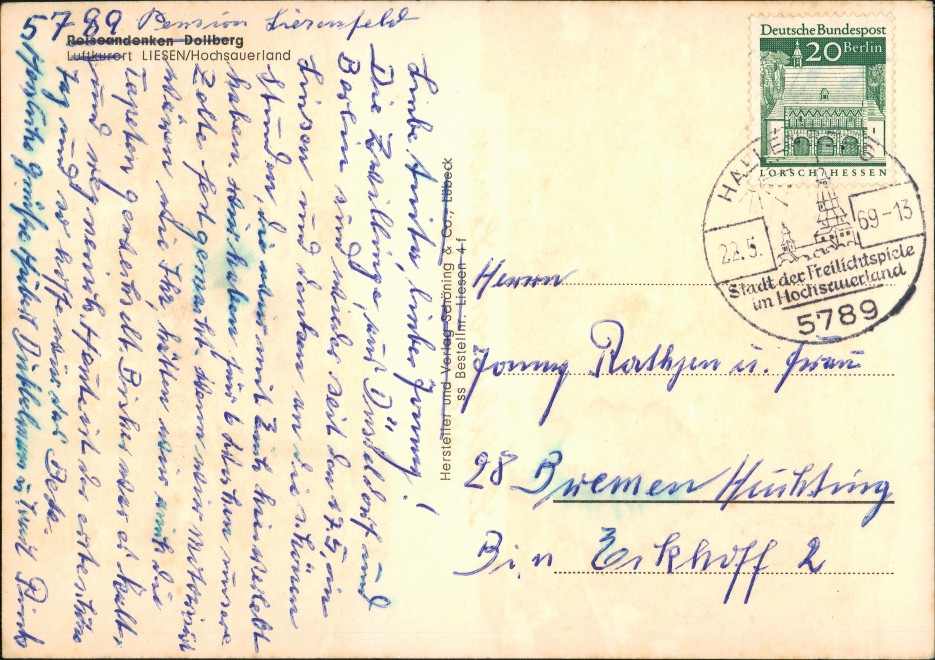 5789 Pension Liesenfeld
Reiseandenken Dollberg
Luftkurort LIESEN/Hochsauerland
Liebe Anita, lieber Jonny!
Die Zwillinge aus Düsseldorf und
Berlin sind wieder seit dem 17.5 in
Liesen und denken an die schönen
Stunden, die wir mit Euch hier verlebt
haben. Wir haben für 6 Wochen unsere
Zelte fest gemacht. Wenn wir motorisiert
wären wie Ihr, hätten wir auch die
Tapeten gewechselt. Bisher war es kalt,
und regnerisch. Heute ist der erste schöne
Tag und so hoffen wir das Beste.
Herzliche Grüße
Hersteller und Verlag Schöning & Co., Lübeck
ss Bestellnr. Liesen 4f
Deutsche Bundespost
20 Berlin
LORSCH/HESSEN
22.5. 69-13
Stadt der Freilichtspiele
im Hochsauerland
5789
Herrn
Jonny Rathjen u. Frau
28 Bremen Huchting
Bin Eickhoff 2